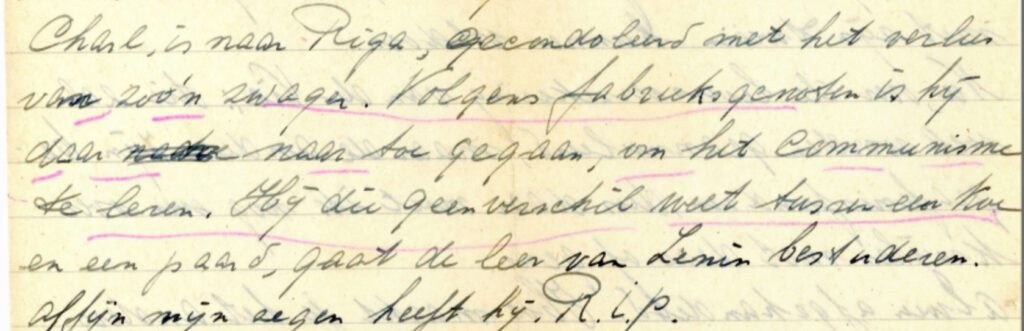 Charl, is naar Riga, gecondoleerd met het verlies
van zoo'n zwager. Volgens fabrieksgenoten is hij
daar naar toe gegaan, om het communisme
te leren. Hij die geen verschil weet tussen een koe
en een paard, gaat de leer van Lenin bestuderen.
affijn mijn zegen heeft hij. R.i.p.